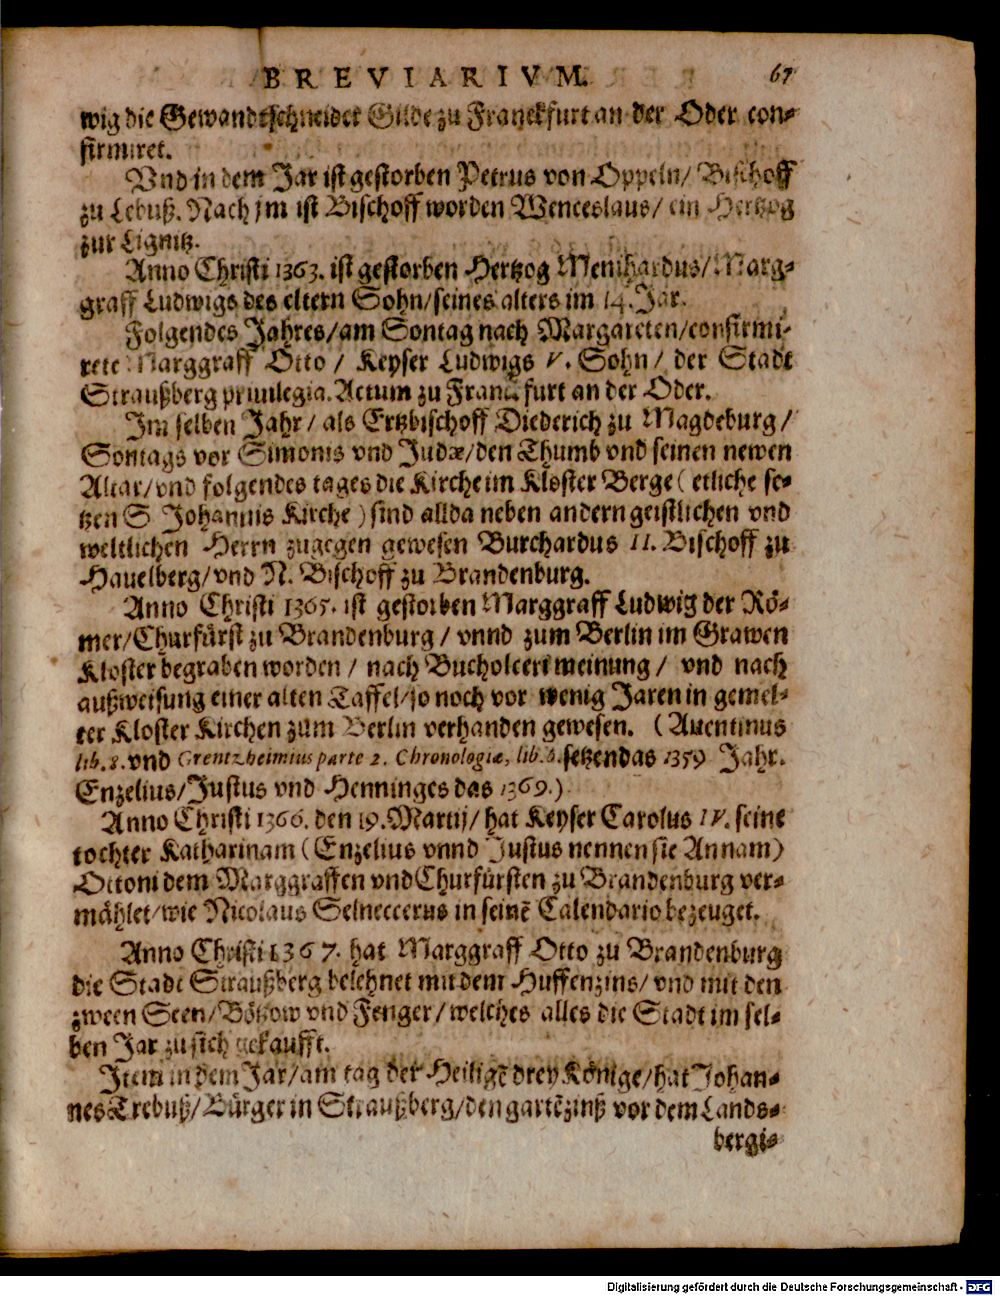 BREVIARIVM. 67
wig die Gewandtschneider Gilde zu Franckfurt an der Oder con-
firmiret.
Vnd in dem Jar ist gestorben Petrus von Oppeln/ Bischoff
zu Lebuß. Nach jm ist Bischoff worden Wenceslaus/ ein Hertzog
zur Lignitz.
Anno Christi 1363. ist gestorben Hertzog Meinhardus/ Marg-
graff Ludwigs des eltern Sohn/ seines alters im 14. Jar.
Folgendes Jahres/ am Sontag nach Margareten/ confirmi-
rete Marggraff Otto / Keyser Ludwigs V. Sohn/ der Stadt
Straußberg priuilegia. Actum zu Franckfurt an der Oder.
Im selben Jahr/ als Ertzbischoff Diederich zu Magdeburg/
Sontags vor Simonis vnd Judæ/ den Thumb vnd seinen newen
Altar/ vnd folgendes tages die Kirche im Kloster Berge ( etliche se-
tzen S Johannis Kirche ) sind allda neben andern geistlichen vnd
weltlichen Herrn zugegen gewesen Burchardus II. Bischoff zu
Hauelberg/ vnd N. Bischoff zu Brandenburg.
Anno Christi 1365. ist gestorben Marggraff Ludwig der Rö-
mer/ Churfürst zu Brandenburg / vnnd zum Berlin im Grawen
Kloster begraben worden / nach Bucholceri meinung / vnd nach
außweisung einer alten Taffel/ so noch vor wenig Jaren in gemel-
ter Kloster Kirchen zum Berlin verhanden gewesen. ( Auentinus
lib. 8. vnd Grentzheimius parte 2. Chronologiæ, lib. setzen das 1359 Jahr.
Enzelius/ Justus vnd Henninges das 1369.)
Anno Christi 1366. den 19. Martij/ hat Keyser Carolus IV. seine
tochter Katharinam ( Enzelius vnnd Justus nennen sie Annam)
Ottoni dem Marggraffen vnd Churfürsten zu Brandenburg ver-
mählet/ wie Nicolaus Selneccerus in seinē Calendario bezeuget.
Anno Christi 1367. hat Marggraff Otto zu Brandenburg
die Stadt Straußberg belehnet mit dem Huffenzins/ vnd mit den
zween Seen/ Bötzow vnd Fenger/ welches alles die Stadt im sel-
ben Jar zu sich gekaufft.
Item in dem Jar/ am tag der Heiligē drey Könige/ hat Johan-
nes Trebuß/ Bürger in Straußberg/ den gartēzinß vor dem Lands-
bergi-
Digitalisierung gefördert durch die Deutsche Forschungsgemeinschaft - DFG